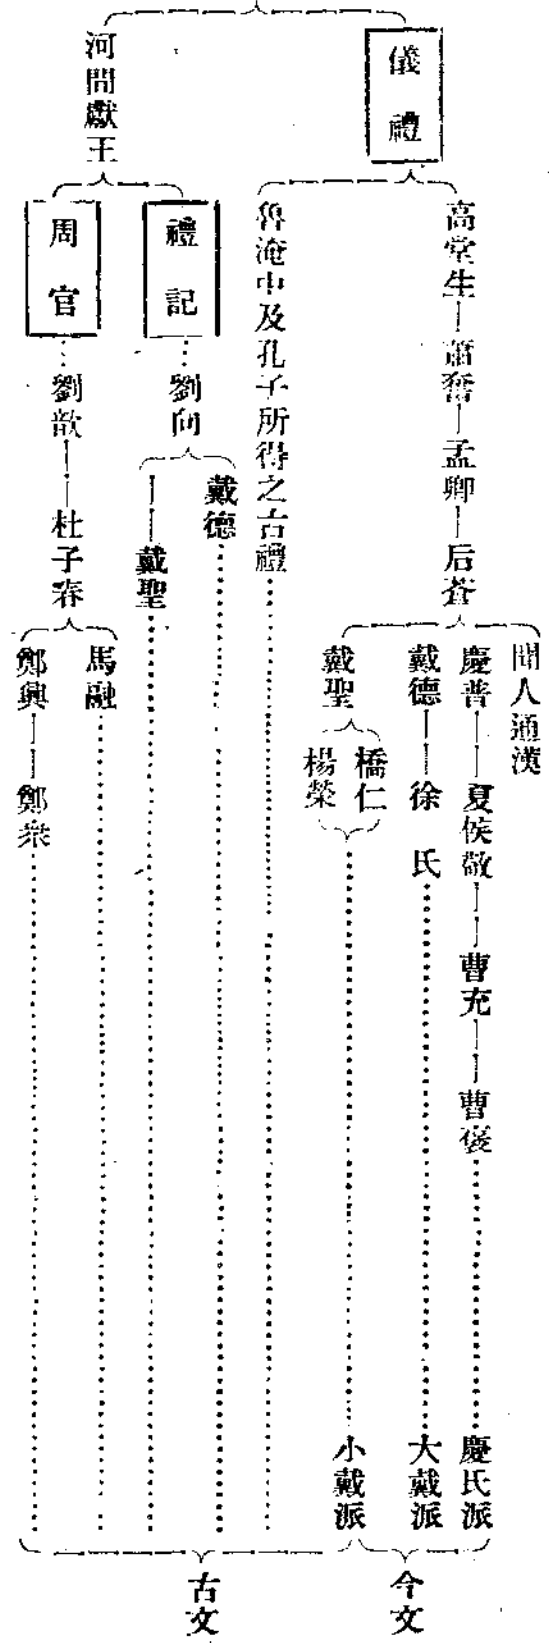 儀禮
高堂生
蕭奮
孟卿
后蒼
聞人通漢
慶普
夏侯敬
曹充
曹褒
慶氏派
戴德
徐氏
大戴派
戴聖
橋仁
楊榮
小戴派
今文
魯淹中及孔子所得之古禮
河間獻王
禮記
劉向
戴德
戴聖
周官
劉歆
杜子春
馬融
鄭興
鄭衆
古文